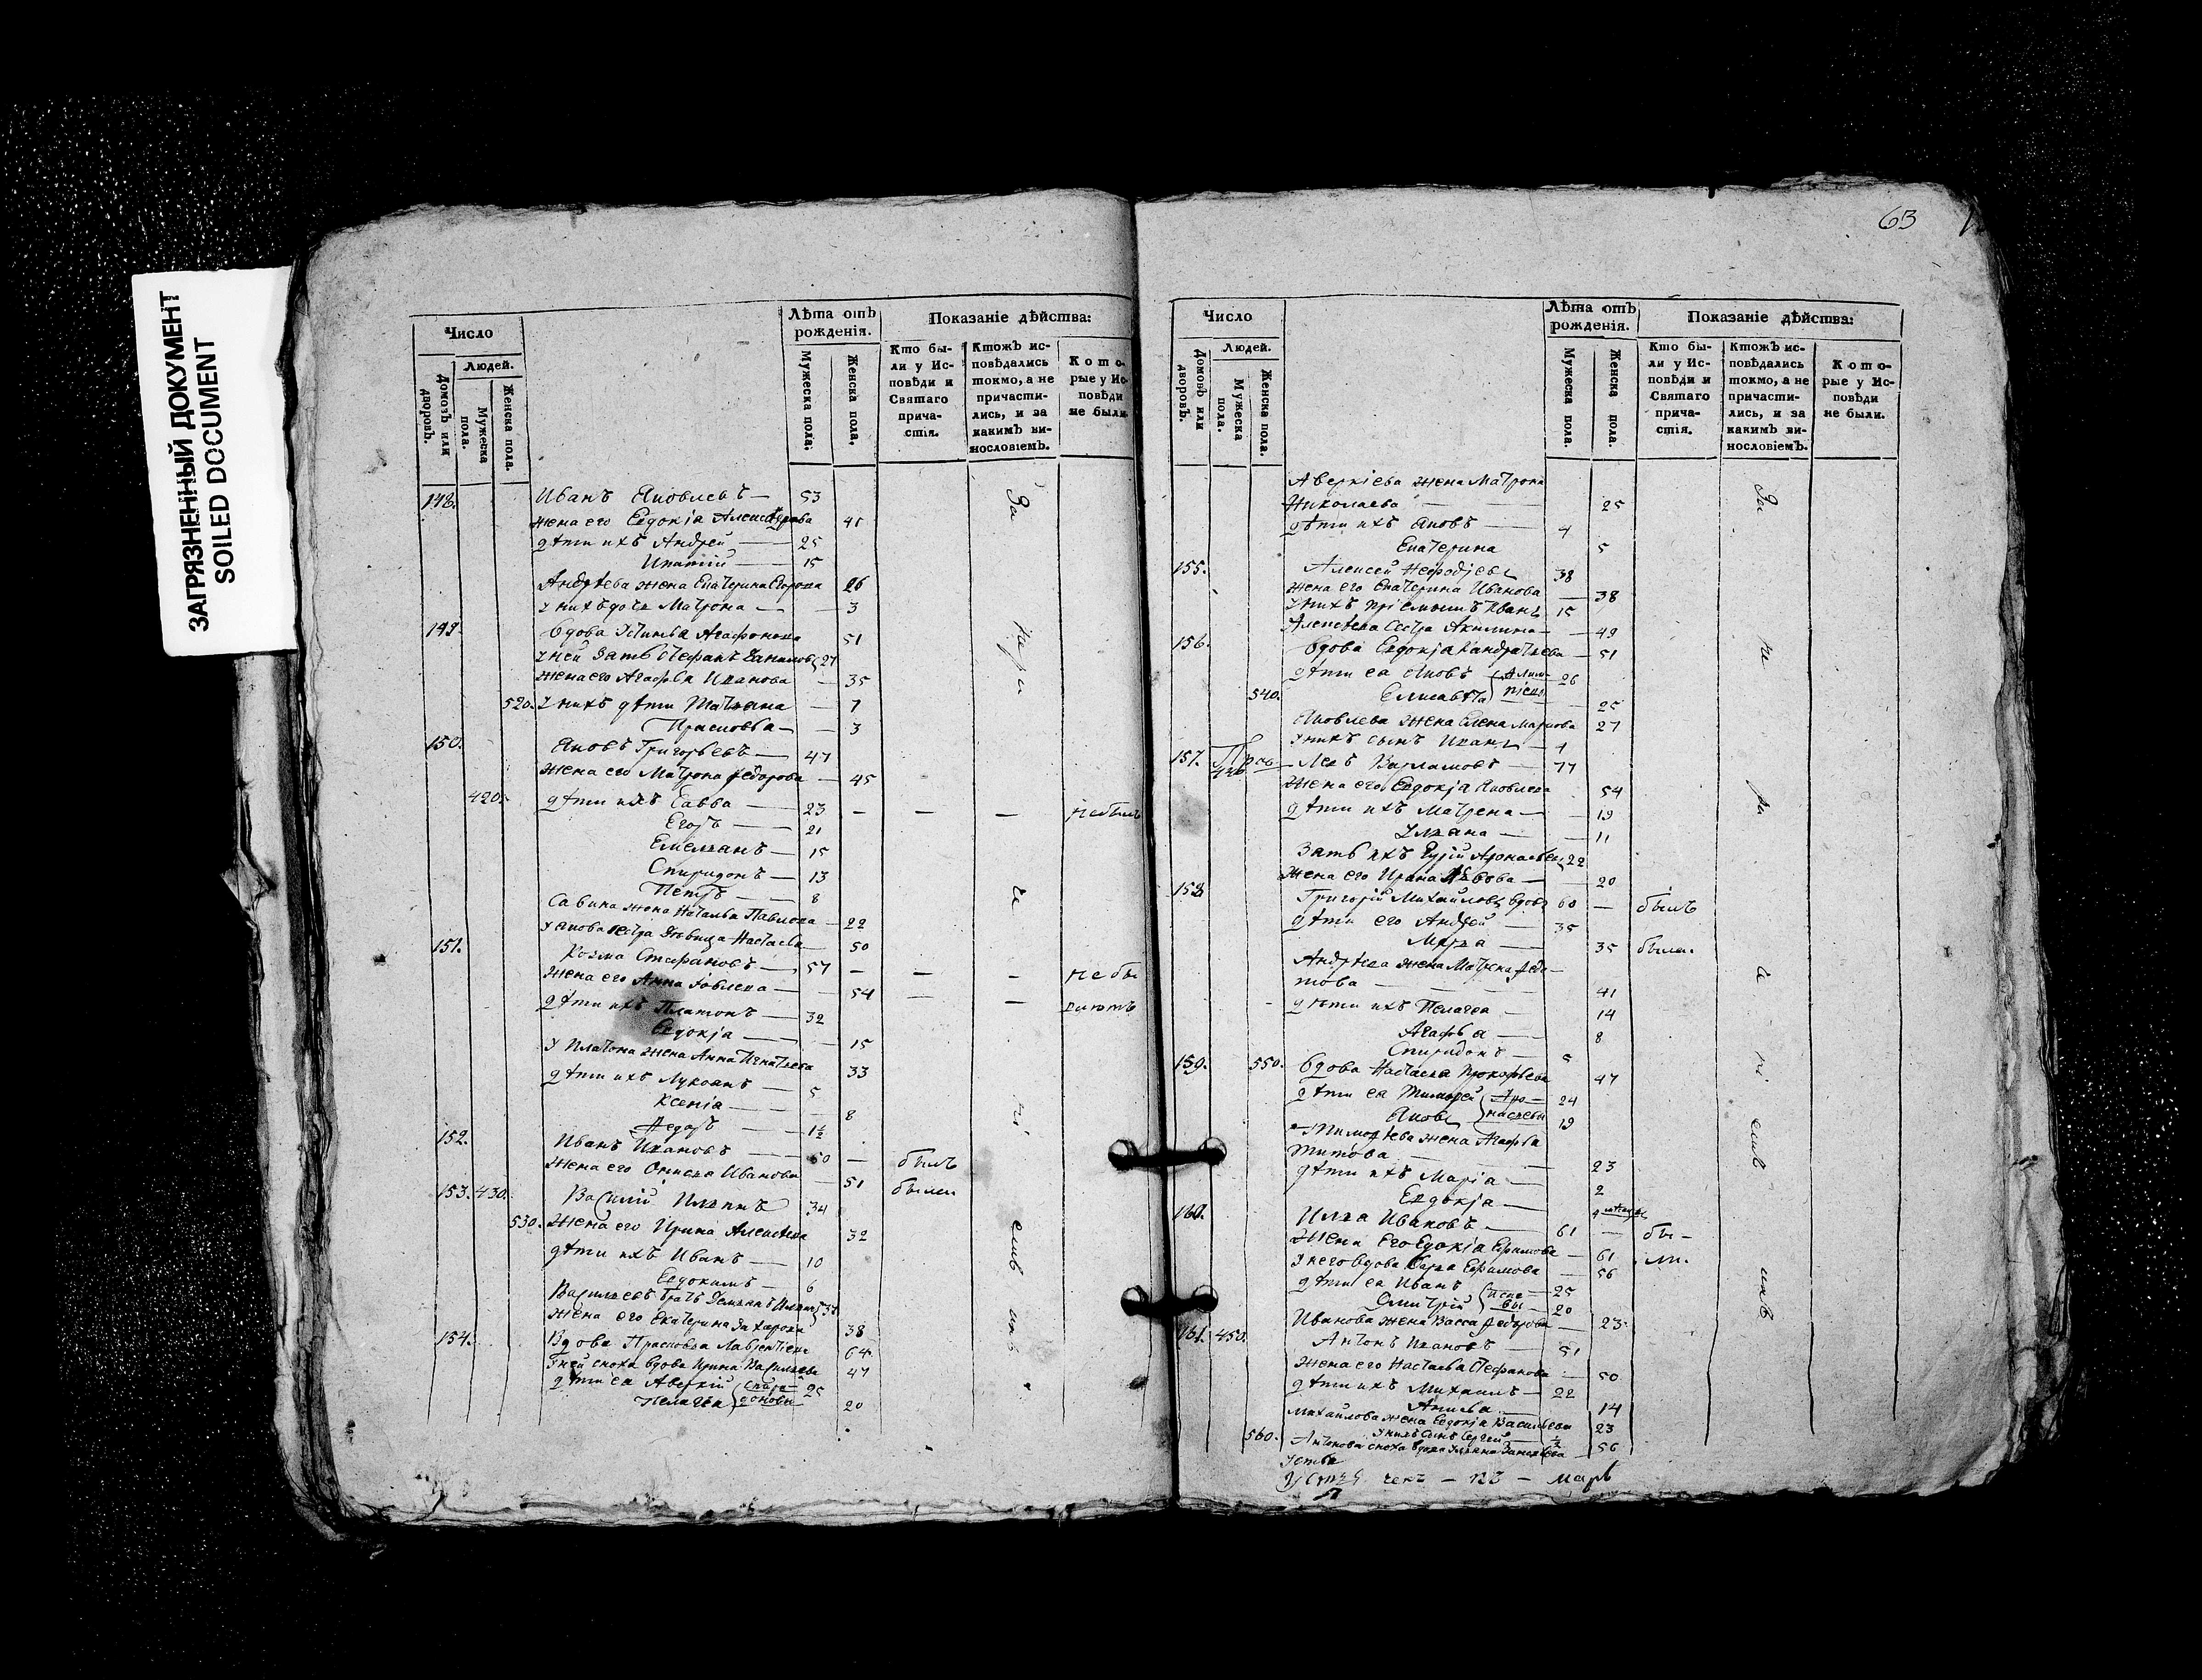 ЗАГРЯЗНЕННЫЙ ДОКУМЕНТ
SOILED DOCUMENT
63
Число
Людей.
Домовъ или дворовъ.
Мужеска пола.
Женска пола.
Лѣта отъ рожденія.
Мужеска пола.
Женска пола.
Показаніе дѣйства:
Кто были у Исповѣди и Святаго причастія.
Ктожъ исповѣдались токмо, а не причастились, и за какимъ винословіемъ.
Которые у Исповѣди не были.
148. Иванъ Яковлевъ — 53
жена его Евдокія 41
дѣти ихъ Андрей — 25
Ипатій — 15
Андрѣева жена Екатерина 26
у нихъ дочь Матрона — 3
149. вдова Устинья Агафонова 51
у ней зять Стефанъ 27
жена его Агафья Иванова — 35
520. у нихъ дѣти Татьяна — 7
Прасковья — 3
150. Яковъ Григорьевъ — 47
жена его Матрона Федорова — 45
420. дѣти ихъ Савва — 23 — — — небылъ
Егоръ — 21
Емельянъ — 15
Спиридонъ — 13
Петръ — 8
Савина жена Наталья Павлова — 22
у Якова сестра дѣвица Настасья — 50
151. Козма Стефановъ — 57 — — — небы
жена его Анна — 54 — —
дѣти ихъ Платонъ — 32
Евдокія — 15
у Платона жена Анна Игнатьева 33
дѣти ихъ Лукоянъ — 5
Ксенія — 8
Федоръ — 1½
152. Иванъ Ивановъ — 60 — былъ
жена его Ивановa — 51 была
153. 430. Василій Ильинъ 34
530. жена его Ирина Алексѣева 32
дѣти ихъ Иванъ — 10
Евдокимъ — 6
Васильевъ братъ Демьянъ Ильинъ
жена его Екатерина Захарова 38
154. Вдова Прасковья Лаврентьева 64
у ней сноха вдова Ирина Васильева 47
дѣти ея Аверкій Спиридоновы 25
Пелагѣя 20
За
нера
че
ні
емъ
Число
Людей.
Домовъ или дворовъ.
Мужеска пола.
Женска пола.
Лѣта отъ рожденія.
Мужеска пола.
Женска пола.
Показаніе дѣйства:
Кто были у Исповѣди и Святаго причастія.
Ктожъ исповѣдались токмо, а не причастились, и за какимъ винословіемъ.
Которые у Исповѣди не были.
Аверкіева жена Матрона
Николаева — 25
дѣти ихъ Яковъ — 4
Екатерина 5
155. Алексей 38
жена его Екатерина Иванова — 38
у нихъ пріемышъ Иванъ 15
Алексѣева сестра Акилина — 49
156. вдова Евдокія Кандратьева — 51
дѣти ея Яковъ 26
540. Елисавета 25
Яковлева жена Елена Маркова 27
у нихъ сынъ Иванъ — 4
157. Левъ Варламовъ — 77
жена его Евдокія Яковлева 54
дѣти ихъ Матрена — 19
Ульяна — 11
зять ихъ 22
жена его Ирина Львова — 20
158. Григорій Михайловъ вдовъ 60 — былъ
дѣти его Андрей — 35
Марья — 35 была
Андрѣева жена Матрена Федо-
това — 41
дѣти ихъ Пелагея — 14
Агафья — 8
Спиридонъ — 5
159. 550. вдова Настасья Прокофьева 47
дѣти ея Тимофей 24
Яковъ 19
Тимофѣева жена Агафья
Титова — 23
дѣти ихъ Марія — 2
Евдокія —
160. Илья Ивановъ — 61 — бы-
жена его Евдокія Ефимова — 61 ли.
у него вдова Ефимова — 56
дѣти ея Иванъ 25
Дмитрій 20
Иванова жена Васса Федорова 23
161. 450. Антонъ Ивановъ — 51
жена его Настасья Стефанова 50
дѣти ихъ Михаилъ — 22
14
Михайлова жена Евдокія Васильева 23
у нихъ сынъ Сергей — ½
560. Антонова сноха вдова Ульяна 56
За
не
ра
че
ні
емъ